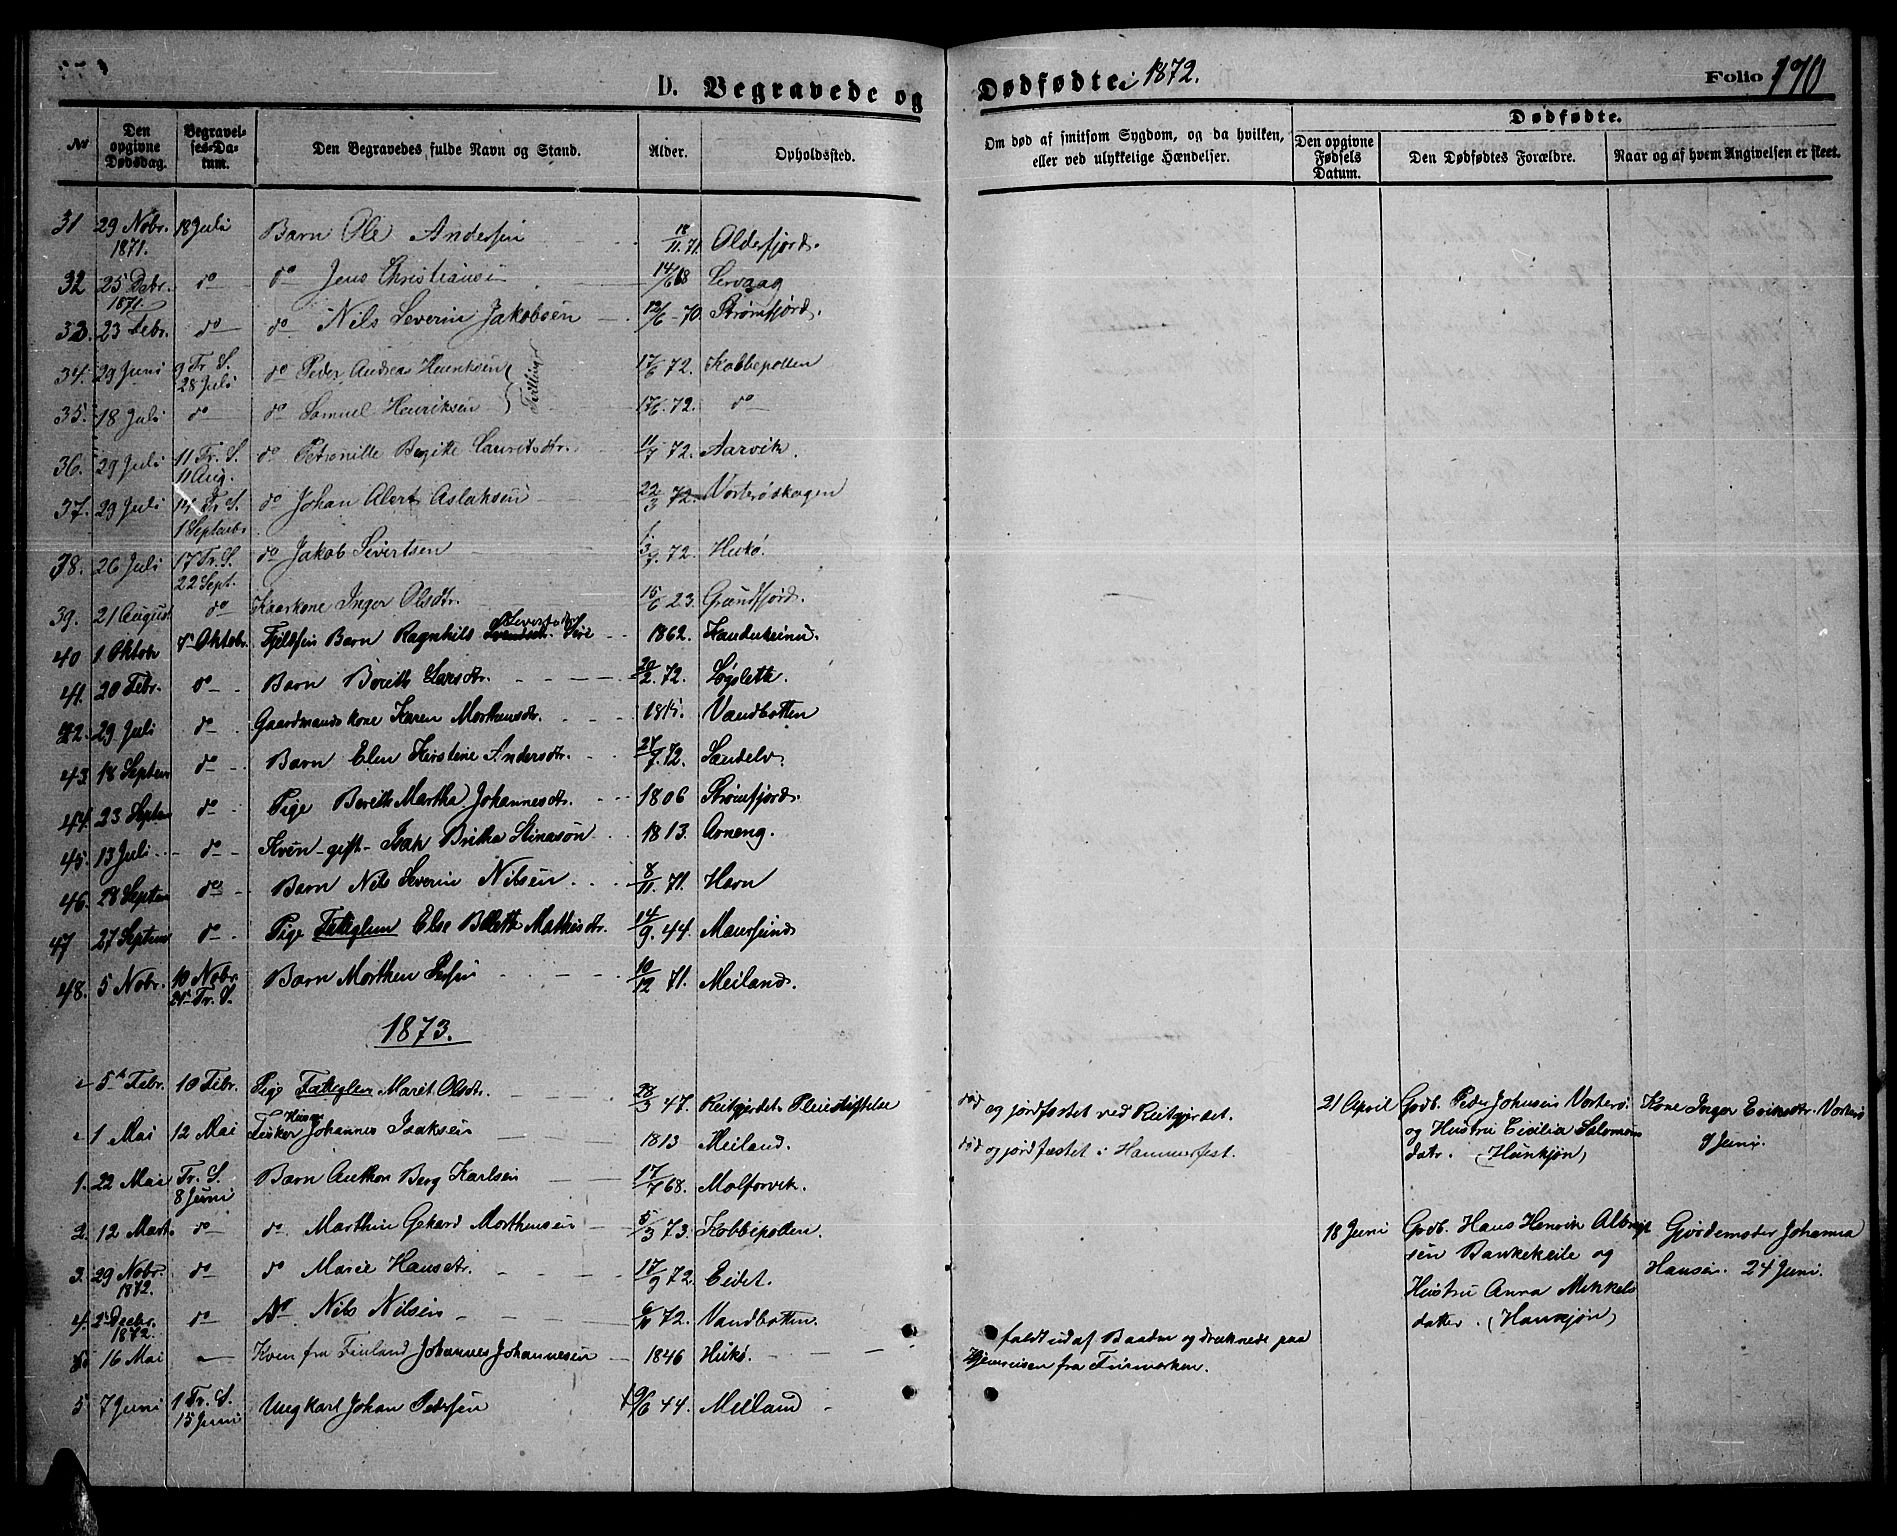 D. Begravede og Dødfødte i 1872. Folio 190
No
Den opgivne Dødsdag.
Begravelses-Datum.
Den Begravedes fulde Navn og Stand.
Alder.
Opholdssted.
Om død af smitsom Sygdom, og da hvilken, eller ved ulykkelige Hændelser.
Dødfødte.
Den opgivne Fødsels Datum.
Den Dødfødtes Forældre.
Naar og af hvem Angivelsen er skeet.
31 29 Nobr. 1871. 18 Juli Barn Ole Andersen 18/11.71. Olderfjord.
32 25 Debr. 1871. do do Jens Christiansen 14/6 68 Lervaag
33. 23 Febr. do do Nils Severin Jakobsen 12/6-70. Strømfjord.
34. 29 Juni 9 Tr. S. 28 Juli do Peder Andreas Henriksen 17/6 72. Kobbepollen
Tvillinger
35. 18 Juli do do Samuel Henriksen 17/6.72. do
36. 29 Juli 11 Tr. S. 11 Aug. do Petronille Birgitte Lauritsdtr. 11/7 72. Aarvik.
37. 29 Juli 14 Tr. S. 1 Septembr. do Johan Alert Aslaksen 22/3 72. Vorterøskagen
38. 26 Juli 17 Tr. S. 22 Sept. do Jakob Sivertsen 72. Hukø.
39. 21 August do Kaarkone Inger Olsdtr. 15/6 23. Grundfjord.
40 1 Oktobr Oktobr. Fjeldfin Barn Ragnhild Sivertsdtr 1862.
41. 20 Febr. do Barn Berith Larsdtr. 20/2.72. Løgslett.
42. 29 Juli do Gaardmandskone Karen Morthensdtr. Vandbotten
43. 18 Septem do Barn Elen Kirstine Andersdtr. 27/7.72. Sandelv.
44. 23 Septem do Pige Berith Martha Johannesdtr. 1806 Strømfjord.
45. 13 Juli do Kvæn-gift-Isak Britha Stinasøn 1813. Arneng.
46. 28 Septem do Barn Nils Severin Nilsen 8/11.71. Havn
47 27 Septem do Pige Fattiglem Else Bereth Mathisdtr. 14/9.44. Maursund
48. 5 Nobr. 10 Nobr 24 Tr. S. Barn Morthen Persen 10/12 71. Meiland.
1873.
5 Febr. 10 Febr. Pige Fattiglem Maret Olsdtr. 28/3 47. Reitgjerdets Pleiestiftelse død og jordfæstet ved Reitgjerdet.
1 Mai 12 Mai Fisker Johannes Isaksen 1813 Meiland. død og jordfæstet i Hammerfest.
21 April Grdb. Peder Johnsen Vorterø. og Hustru Cecilia Salomons datr. (Hunkjøn) Kone Inger Eriksdtr. Vorterø 9 Juni.
1. 22 Mai Tr. S. 8 Juni Barn Anthon Berg Karlsen 17/7 68. Molforvik.
2. 12 Marts do do Marthin Gekard Morthensen 5/3 73. Kobbepollen.
18 Juni Grdb. Hans Henrik Albrigtsen Bankekeile og Hustru Anna Mikkels datter. (Hankjøn) Gjordemoder Johanna Hansen. 24 Juni.
3. 29 Nobr. 1872. do do Marie Hansdtr. 17/9 72. Eidet.
4. 2 Decbr. 1872. do do Nils Nilsen 72. Vandbotten.
16 Mai Kven fra Finland Johannes Johannesen 1846 Hukø. faldt ud af Baaden og druknede paa Hjemreisen fra Finmarken.
5 7 Juni 1 Tr. S. 15 Juni Ungkarl Johan Pedersen 19/6 44. Meiland